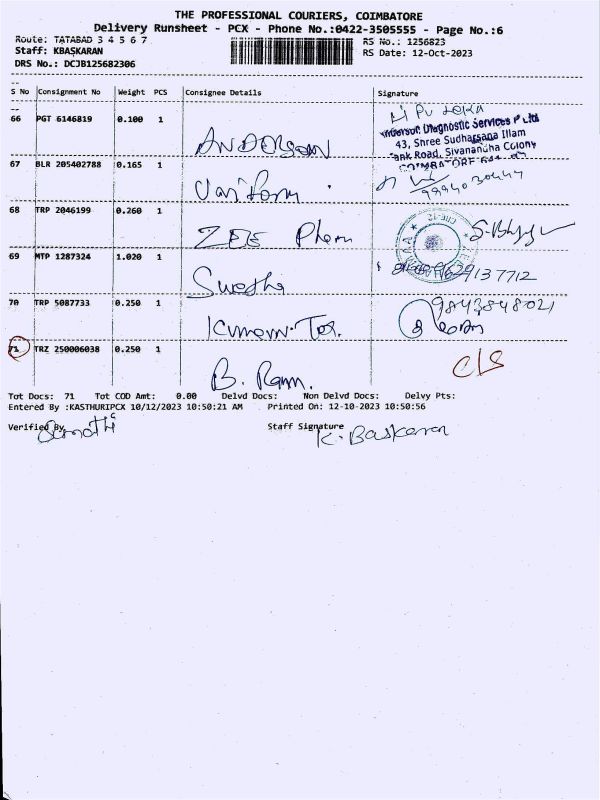 THE PROFESSIONAL COURIERS, COIMBATORE
Delivery Runsheet - PCX - Phone No.:0422-3505555 - Page No.:6
Route: TATABAD 3 4 5 6 7 RS No.: 1256823
Staff: KBASKARAN RS Date: 12-Oct-2023
DRS No.: DCJB125682306
S No Consignment No Weight PCS Consignee Details Signature
66 PGT 6146819 0.100 1 ANDERSON
Diagnostic Services P Ltd
43, Shree Sudharsana Illam
Tank Road, Sivanandha Colony
67 BLR 205402788 0.165 1
68 TRP 2046199 0.260 1 ZEE
69 MTP 1287324 1.020 1 Swetha
70 TRP 5087733 0.250 1 9843848021
71 TRZ 250006038 0.250 1 B. Ram. C/S
Tot Docs: 71 Tot COD Amt: 0.00 Delvd Docs: Non Delvd Docs: Delvy Pts:
Entered By :KASTHURIPCX 10/12/2023 10:50:21 AM Printed On: 12-10-2023 10:50:56
Verified By Staff Signature K. Baskaran